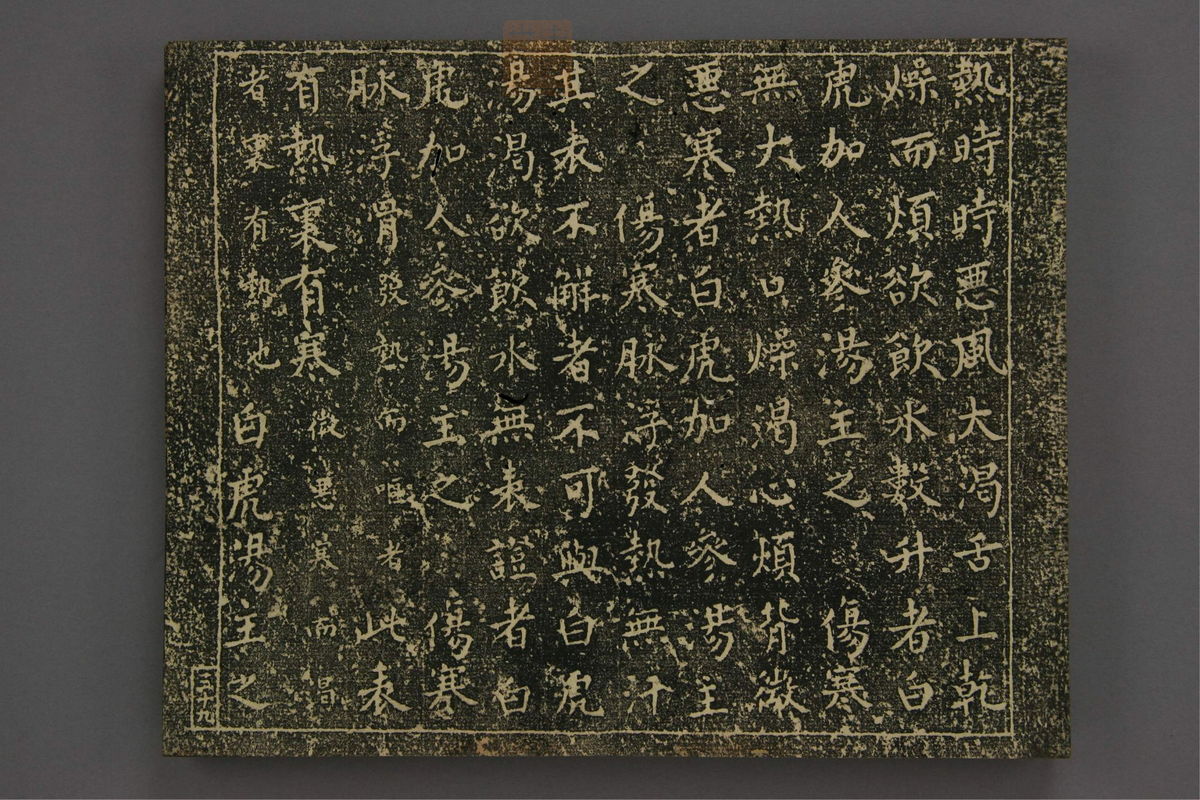 熱時時惡風大渴舌上乾
燥而煩欲飲水數升者白
虎加人參湯主之 傷寒
無大熱口燥渴心煩背微
惡寒者白虎加人參湯主
之 傷寒脉浮發熱無汗
其表不解者不可與白虎
湯渴欲飲水無表證者白
虎加人參湯主之 傷寒
脉浮滑發熱而嘔者此表
有熱裏有寒微惡而
者裏有熱也白虎湯主之
三十九